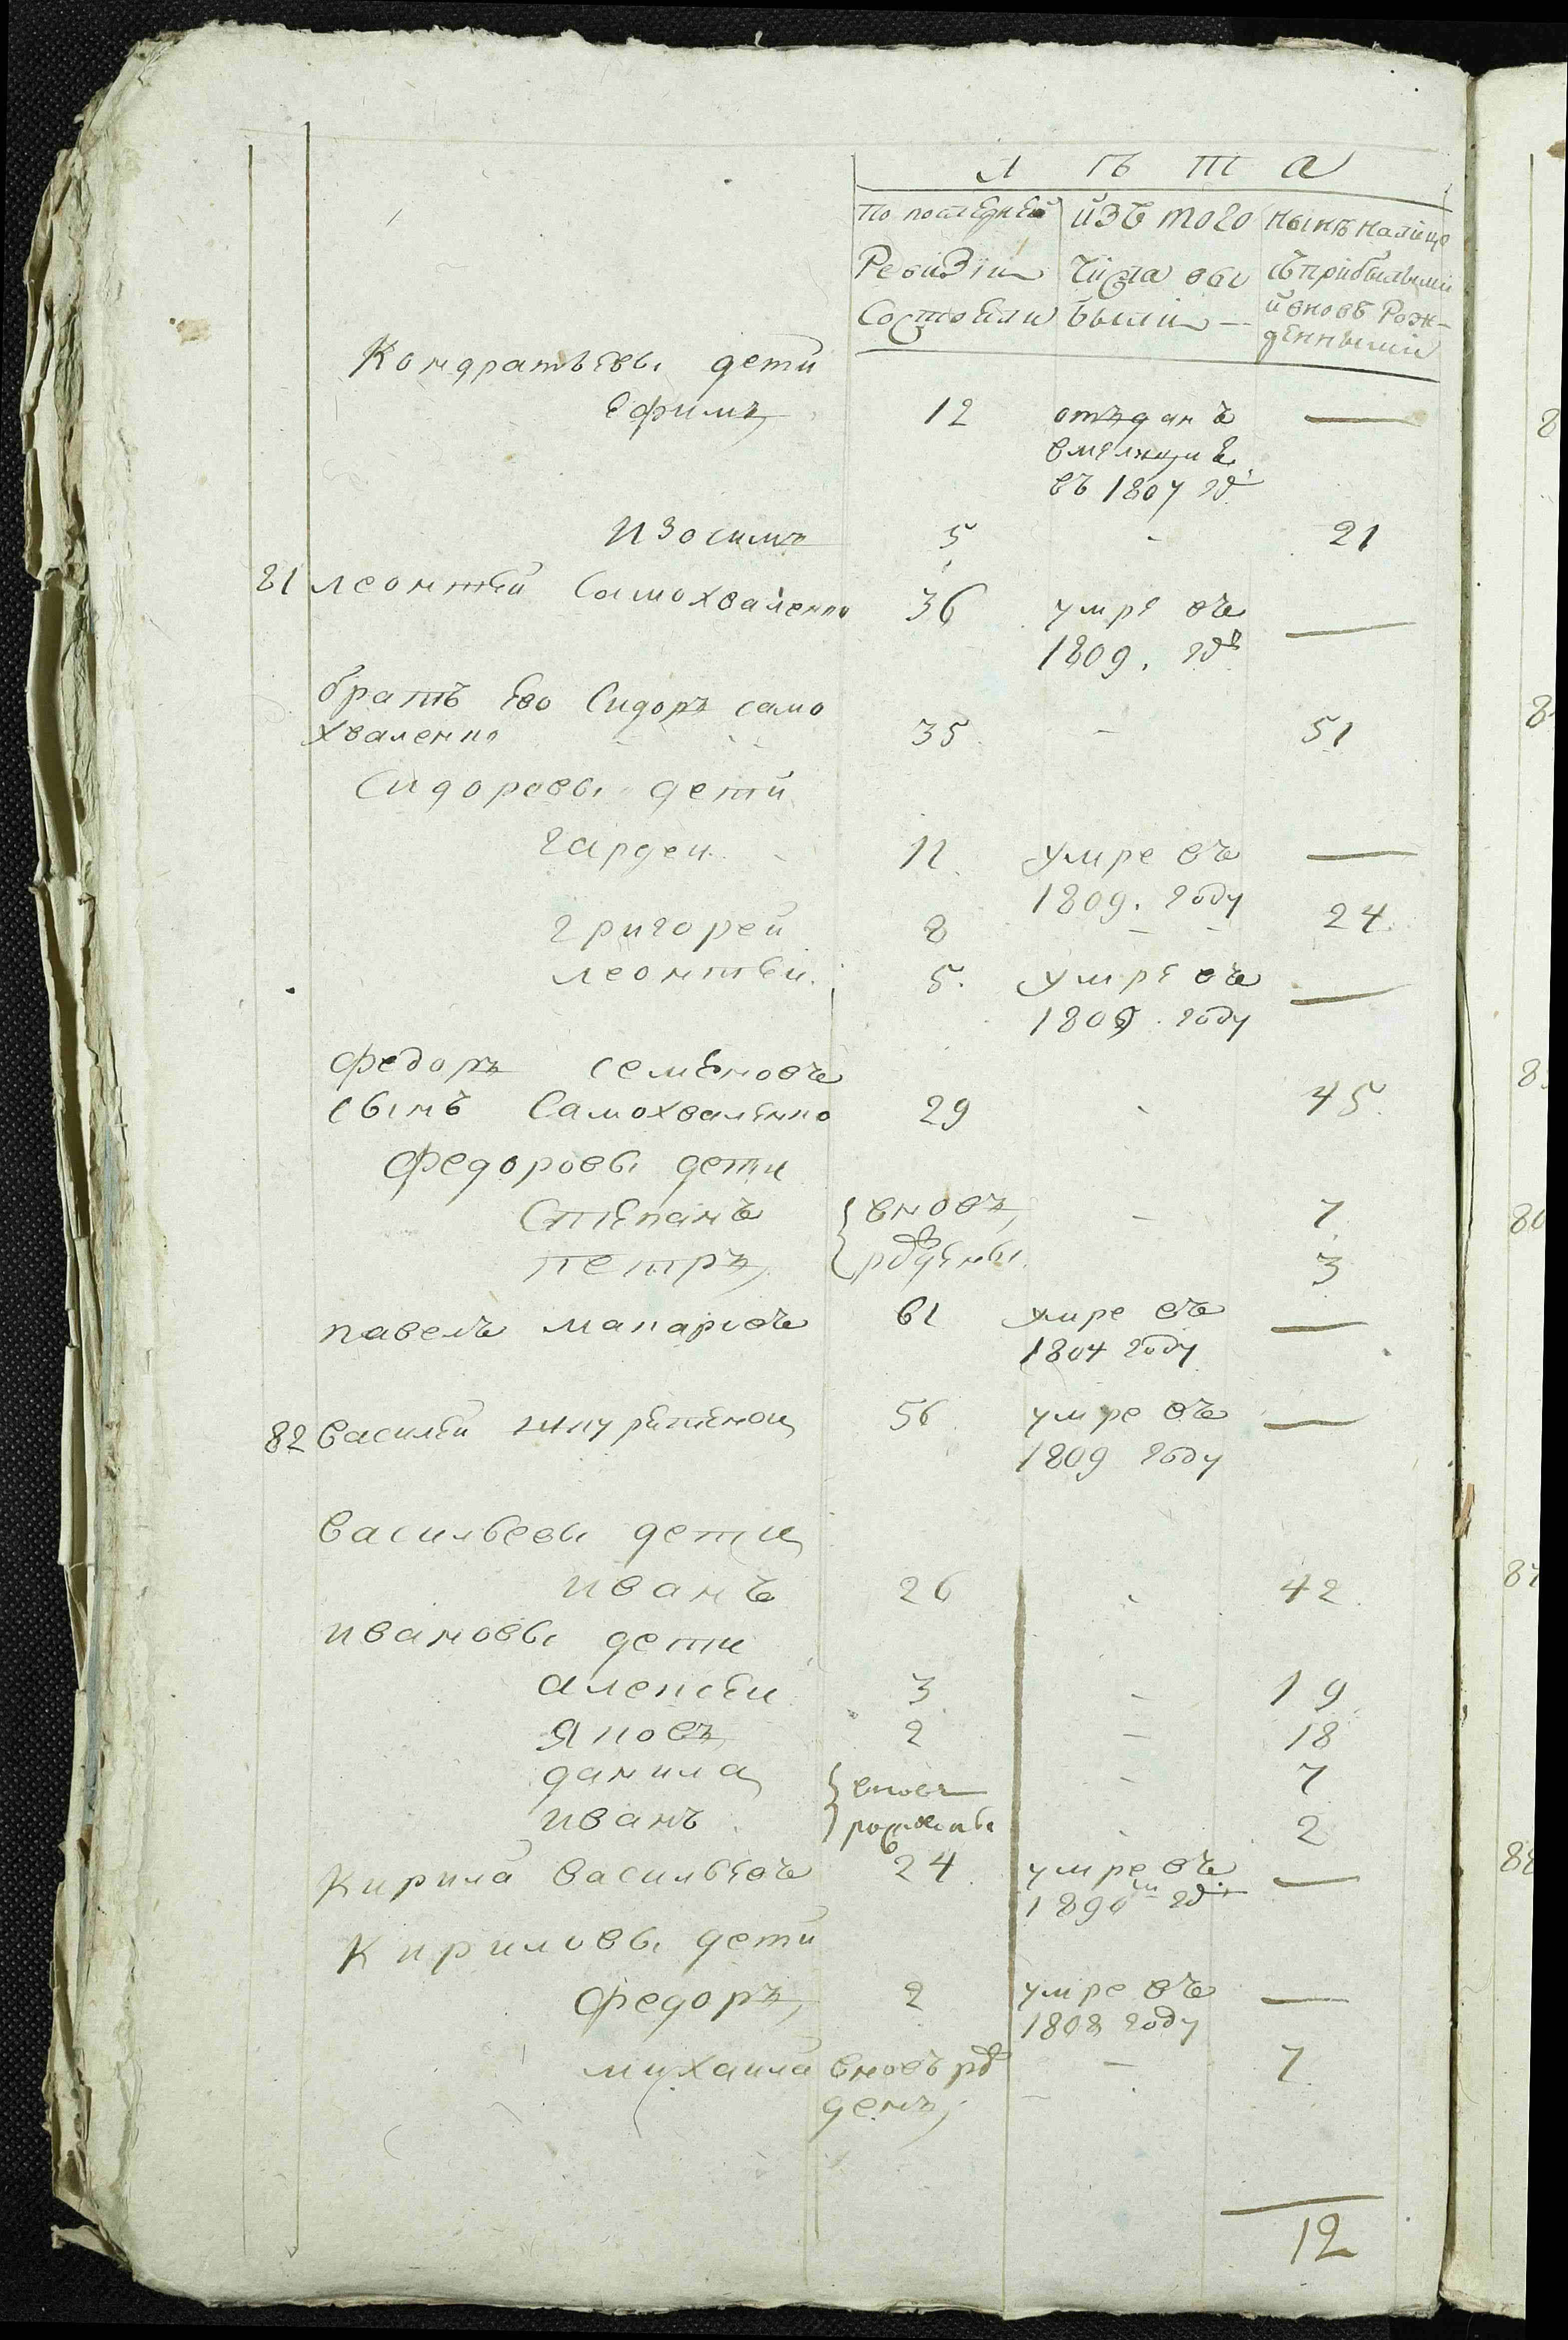 лѣта
По последней изъ того нынѣ налицо
Ревизіи числа вы съ прибылыми
Состояли были — и вновь Рож-
денными
Кондратьевы дети
Ефимъ 12 отъдан в —
въ 1807 гд
Изосимъ 5 - 21
81 леонтей Самохваленко 36 умре въ —
1809. гдѣ
братъ Ево Сидоръ само
хваленко 35 - 51
Сидоровы дети
гардеи 11 умре въ —
1809. году
григореи 8 - - 24
леонтеи 5. умре въ —
1809. году
федоръ семеновъ
сынъ Самохваленко 29 - 45.
федоровы дети
Степанъ вновь - 7
петръ рождены 3
павелъ макаровъ 61 умре въ —
1804 году
82 Василеи 56 умре въ —
1809 году
Васильевы дети
иванъ 26 - 42
ивановы дети
алексеи 3 - 19
яковъ 2 - 18
данила вновь - 7
иванъ рождены - 2
Кирила Васильевъ 24 умре въ —
гд
Кириловы дети
федоръ 2 умре въ —
1808 году
михаила вновь рож - 7
денъ
12